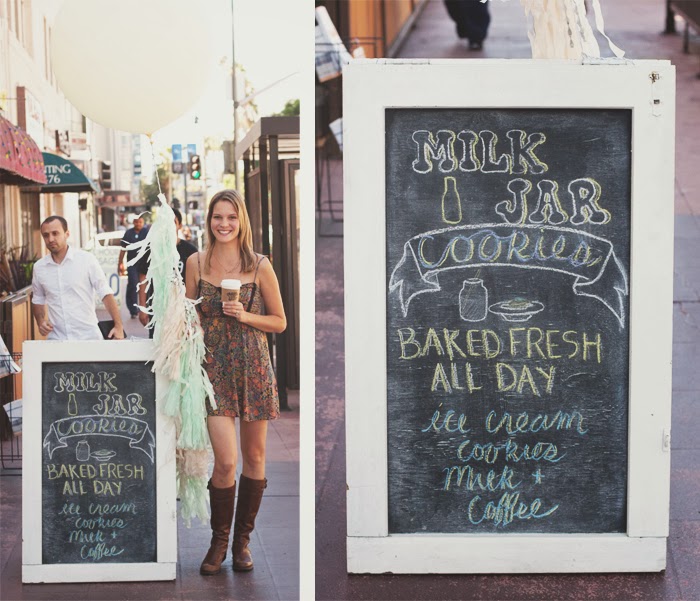 NTING
76
MILK
JAR
COOKIES
BAKED FRESH
ALL DAY
ice cream
cookies
Milk +
Coffee
MILK
JAR
COOKIES
BAKED FRESH
ALL DAY
ice cream
cookies
Milk +
Coffee